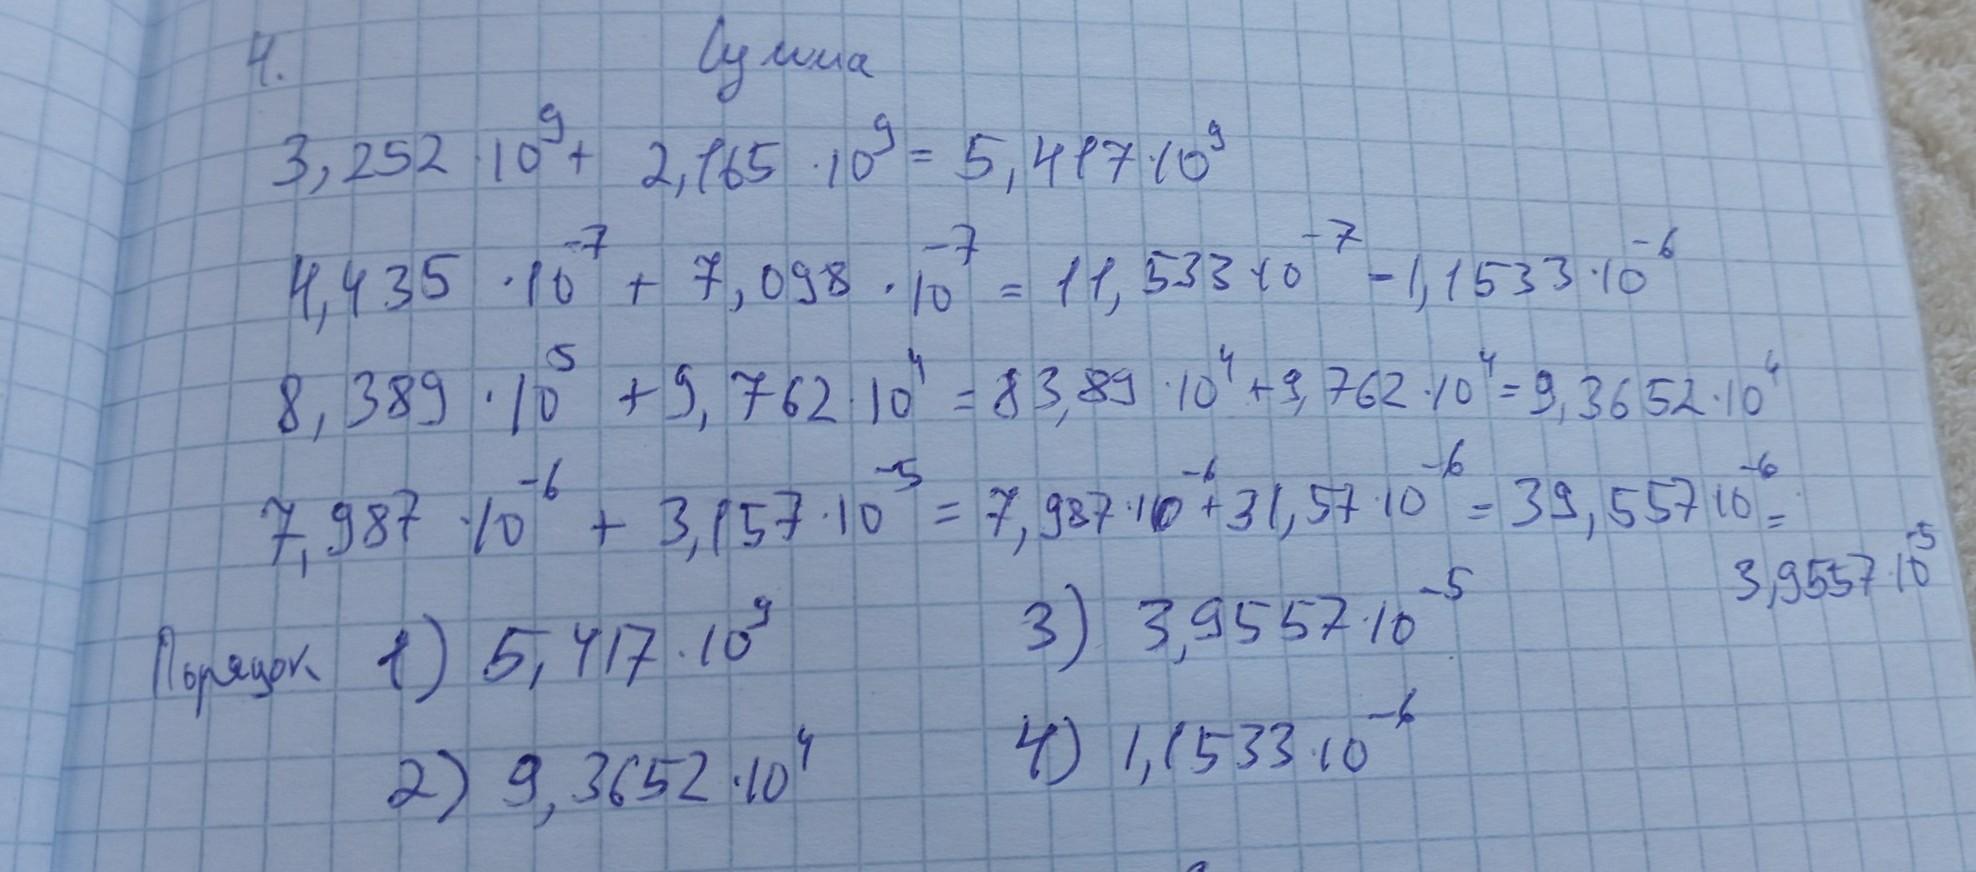 4. Сумма
3,252 · 10⁹ + 2,165 · 10⁹ = 5,417 · 10⁹
4,435 · 10⁻⁷ + 7,098 · 10⁻⁷ = 11,533 · 10⁻⁷ = 1,1533 · 10⁻⁶
8,389 · 10⁵ + 9,762 · 10⁴ = 83,89 · 10⁴ + 9,762 · 10⁴ = 9,3652 · 10⁴
7,987 · 10⁻⁶ + 3,157 · 10⁻⁵ = 7,987 · 10⁻⁶ + 31,57 · 10⁻⁶ = 39,557 · 10⁻⁶ =
3,9557 · 10⁻⁵
Порядок 1) 5,417 · 10⁹ 3) 3,9557 · 10⁻⁵
2) 9,3652 · 10⁴ 4) 1,1533 · 10⁻⁶